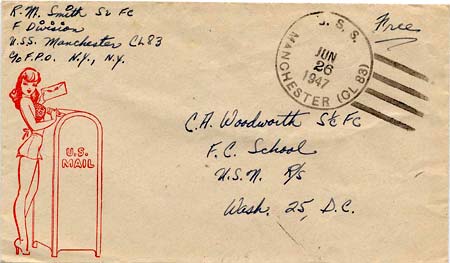 R.M. Smith S2 FC
F Division
U.S.S. Manchester CL83
c/o F.P.O. N.Y., N.Y.
Free
U. S. S.
JUN
26
1947
MANCHESTER (CL 83)
U.S.
MAIL
C.A. Woodworth S1/c FC
F.C. School
U.S.N. R/S
Wash. 25, D.C.